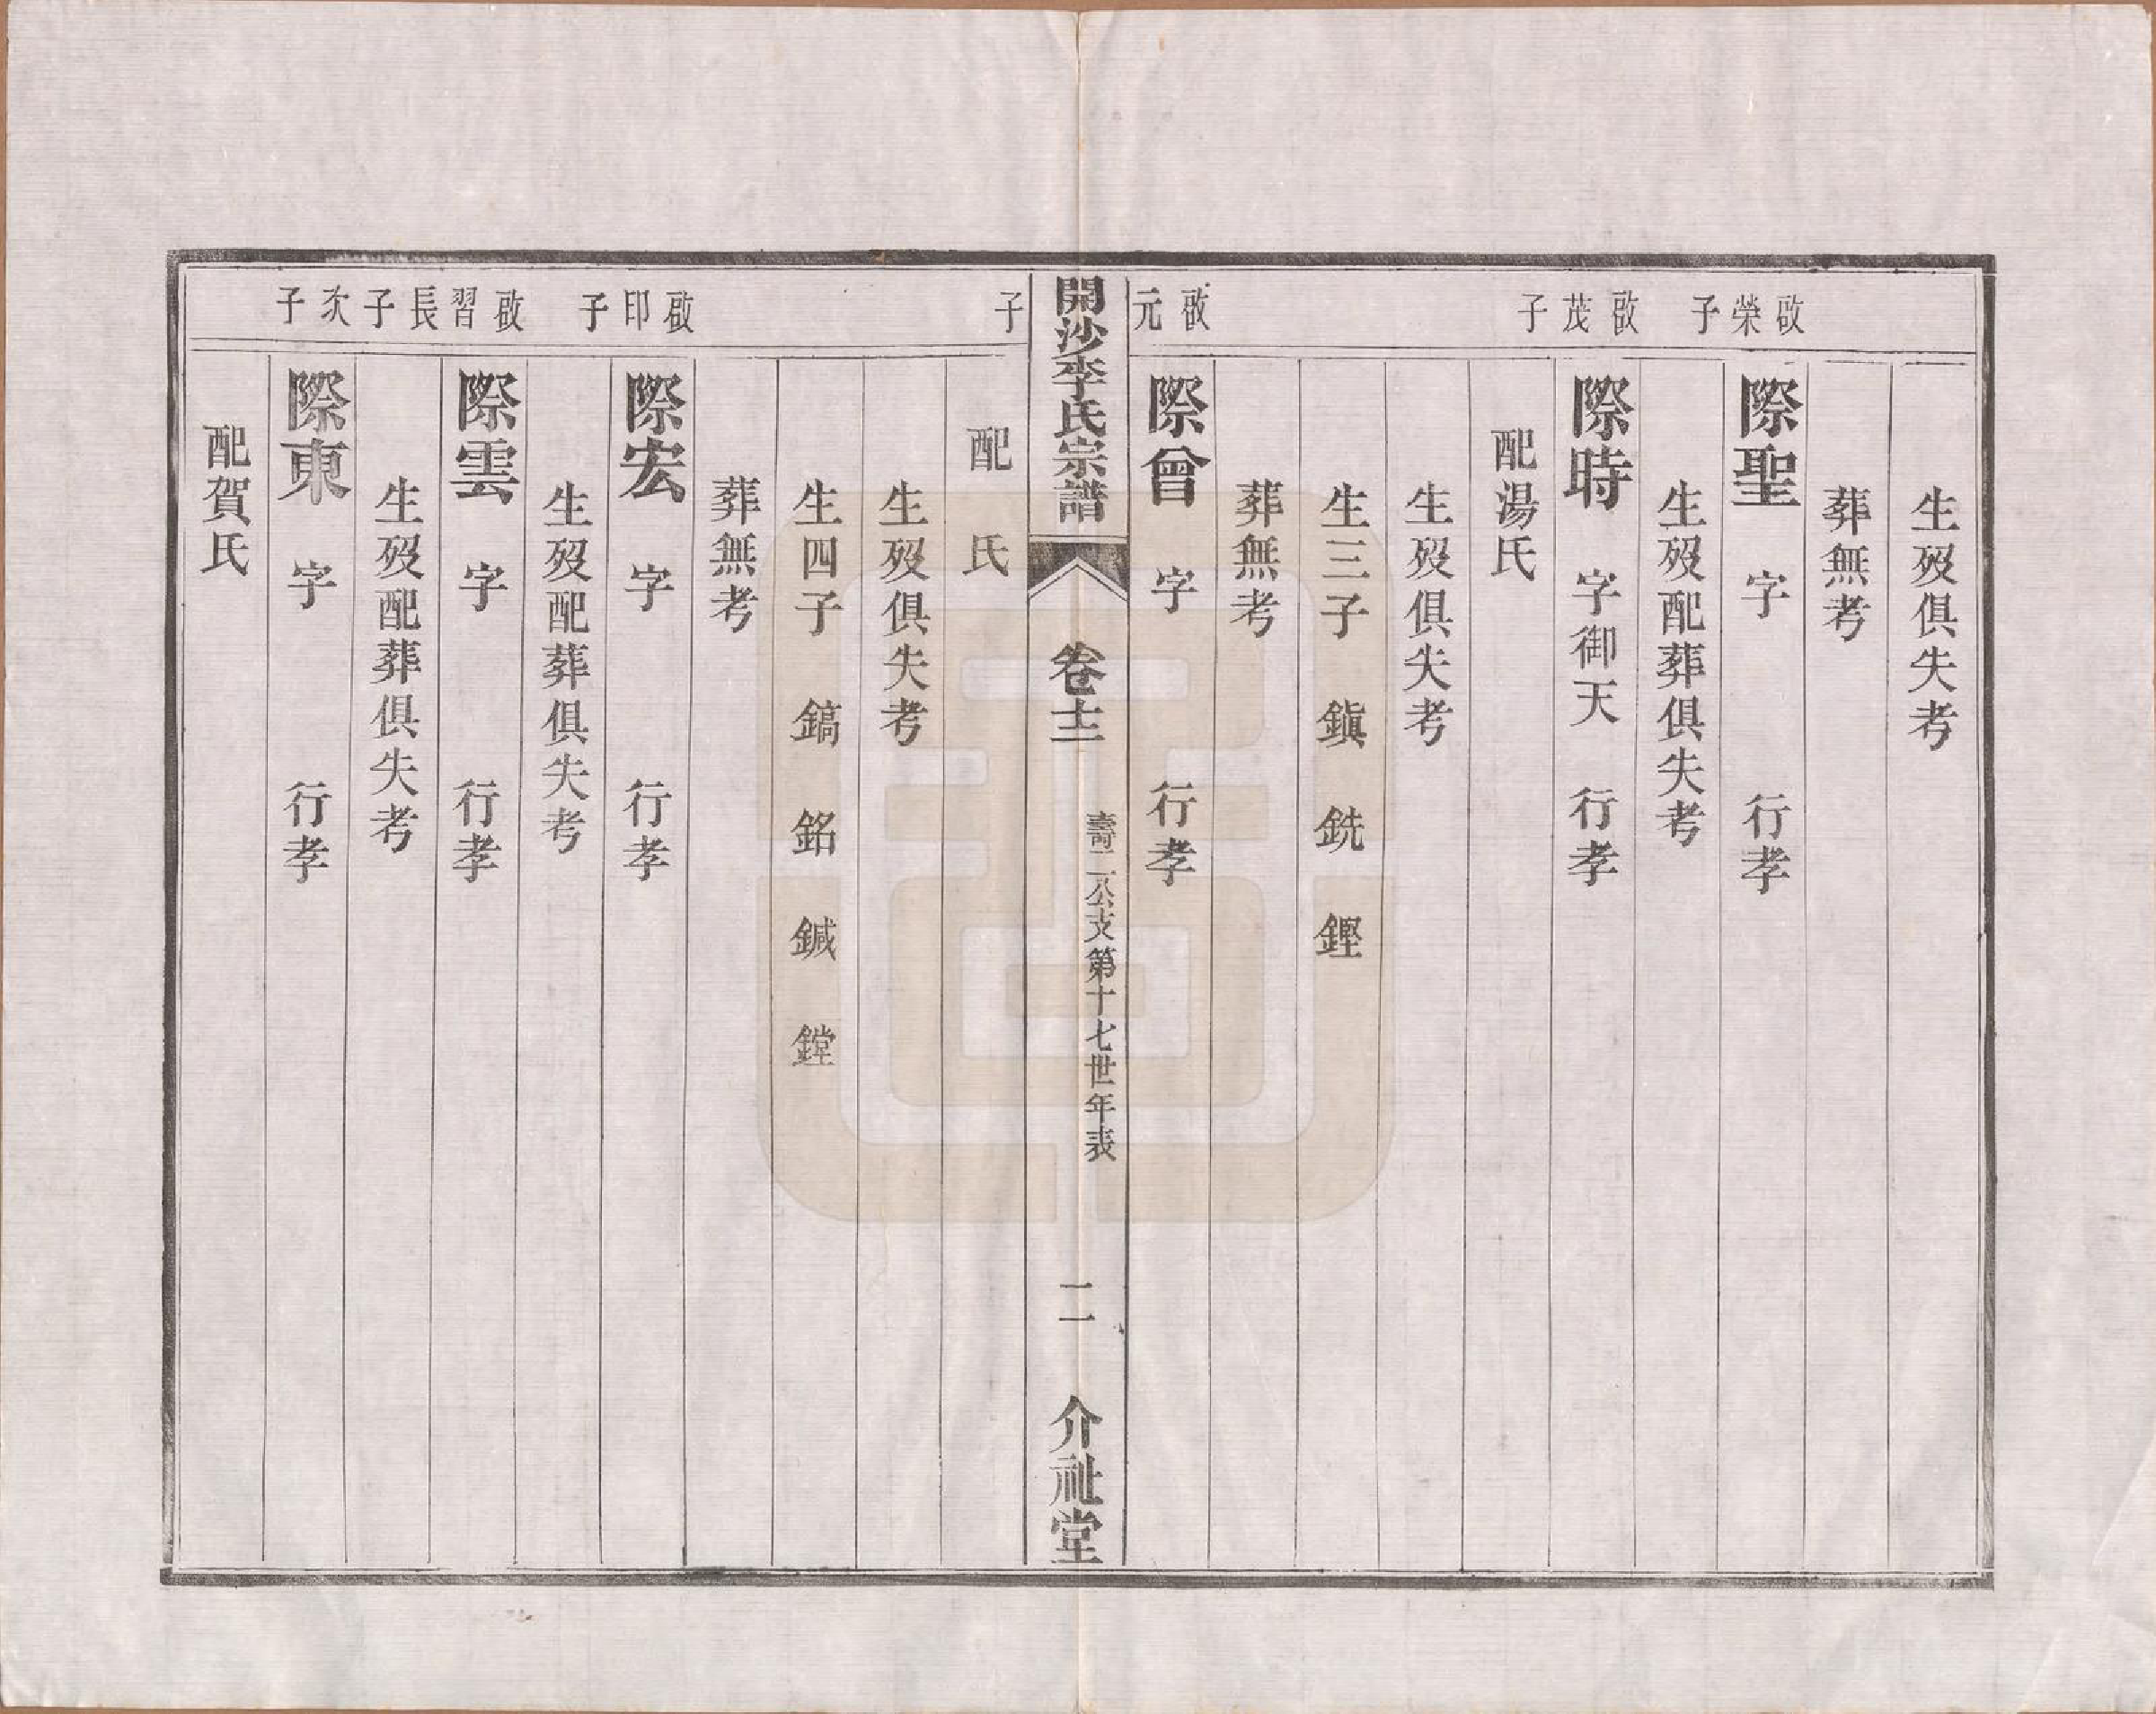 生歿俱失考
葬無考
啟榮子
際聖 字 行孝
生歿配葬俱失考
啟茂子
際時 字御天 行孝
配湯氏
生歿俱失考
生三子 鎮 銑 鏗
葬無考
啟元子
際曾 字 行孝
開沙李氏宗譜 卷十二 壽二公支第十七世年表 二 介祉堂
配 氏
生歿俱失考
生四子 鎬 銘 鍼 鏜
葬無考
啟印子
際宏 字 行孝
生歿配葬俱失考
啟習長子
際雲 字 行孝
生歿配葬俱失考
次子
際東 字 行孝
配賀氏